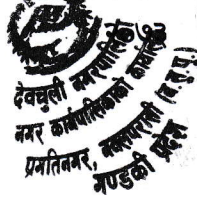 देवचुली नगरपालिका
नगर कार्यपालिकाको कार्यालय
प्रगतिनगर, नवलपरासी (ब.सु.पू.)
गण्डकी प्रदेश